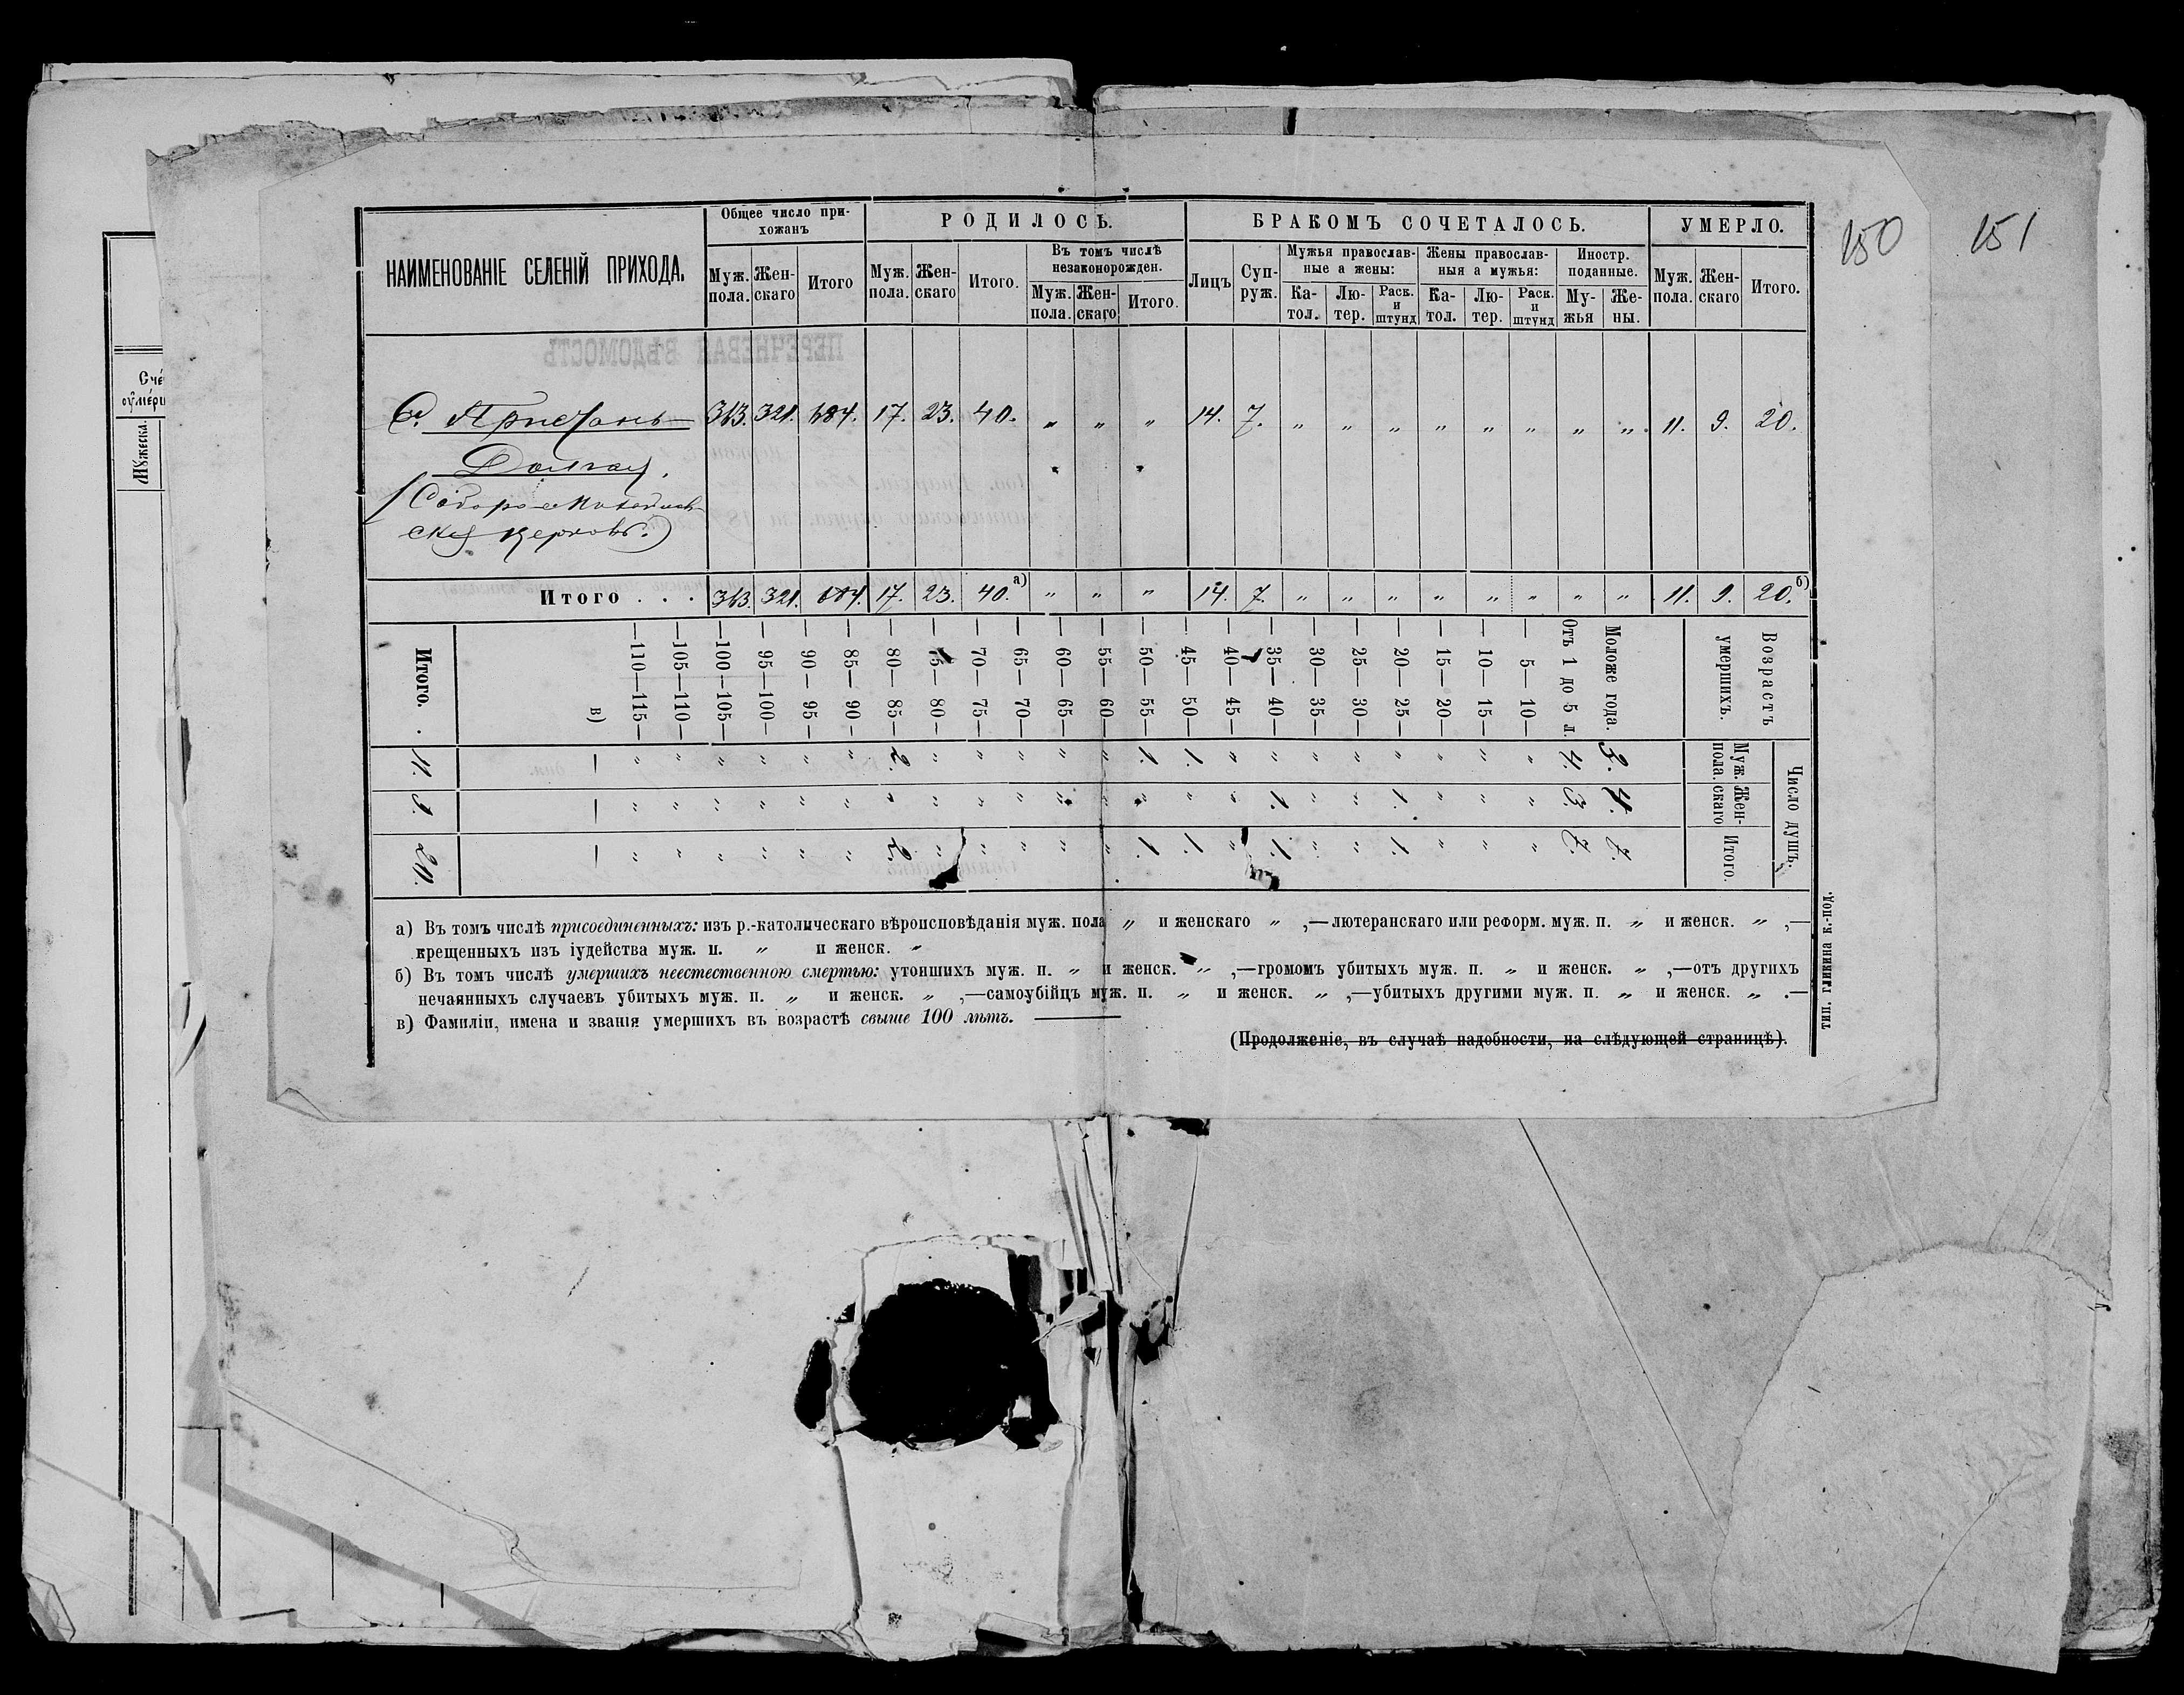 150 151
НАИМЕНОВАНІЕ СЕЛЕНІЙ ПРИХОДА.
Общее число при-
хожанъ
Муж. пола. Жен-скаго Итого
РОДИЛОСЬ.
Муж. пола. Жен-скаго Итого.
Въ томъ числѣ
незаконорожден.
Муж. пола. Жен-скаго Итого.
БРАКОМЪ СОЧЕТАЛОСЬ.
Лицъ Суп-руж.
Мужья православ-
ные а жены:
Ка-тол. Лю-тер. Раск. и штунд
Жены православ-
ныя а мужья:
Ка-тол. Лю-тер. Раск. и штунд
Иностр.
поданные.
Му-жья Же-ны.
УМЕРЛО.
Муж. пола. Жен-скаго Итого.
ПЕРЕЧНЕВАЯ ВѢДОМОСТЬ
С. Пристань 363. 321. 684. 17. 23. 40. „ „ „ 14. 7. „ „ „ „ „ „ „ „ 11. 9. 20.
Долгая.
церковь.)
Итого . . . 363. 321. 684. 17. 23. 40. а) „ „ „ 14. 7. „ „ „ „ „ „ „ „ 11. 9. 20. б)
Возрастъ
умершихъ.
Число душъ.
Муж. пола. Жен-скаго Итого.
Моложе года. 3. 4. 7.
Отъ 1 до 5 л. 4. 3. 7.
— 5— 10— „ „ „
— 10— 15— „ „ „
— 15— 20— „ „ „
— 20— 25— „ 1. 1.
— 25— 30— „ „ „
— 30— 35— „ „ „
— 35— 40— „ 1. 1.
— 40— 45— „ „ „
— 45— 50— 1. „ 1.
— 50— 55— 1. „ 1.
— 55— 60— „ „ „
— 60— 65— „ „ „
— 65— 70— „ „ „
— 70— 75— „ „ „
— 75— 80— „ „ „
— 80— 85— 2. „ 2.
— 85— 90— „ „ „
— 90— 95— „ „ „
— 95—100— „ „ „
—100—105— „ „ „
—105—110— „ „ „
—110—115— „ „ „
в) — — —
Итого. . 11. 9. 20.
а) Въ томъ числѣ присоединенныхъ: изъ р.-католическаго вѣроисповѣданія муж. пола „ и женскаго „ ,—лютеранскаго или реформ. муж. п. „ и женск. „ ,—
крещенныхъ изъ іудейства муж. п. „ и женск. „
б) Въ томъ числѣ умершихъ неестественною смертью: утонших муж. п. „ и женск. „ ,—громомъ убитыхъ муж. п. „ и женск. „ ,—отъ другихъ
нечаянныхъ случаевъ убитыхъ муж. п. „ и женск. „ ,—самоубійцъ муж. п. „ и женск. „ ,—убитыхъ другими муж. п. „ и женск. „ .—
в) Фамиліи, имена и званія умершихъ въ возрастѣ свыше 100 лѣтъ. ———
(Продолженіе, въ случаѣ надобности, на слѣдующей страницѣ).
ТИП. ГЛИКИНА К.-ПОД.
Мужеска.